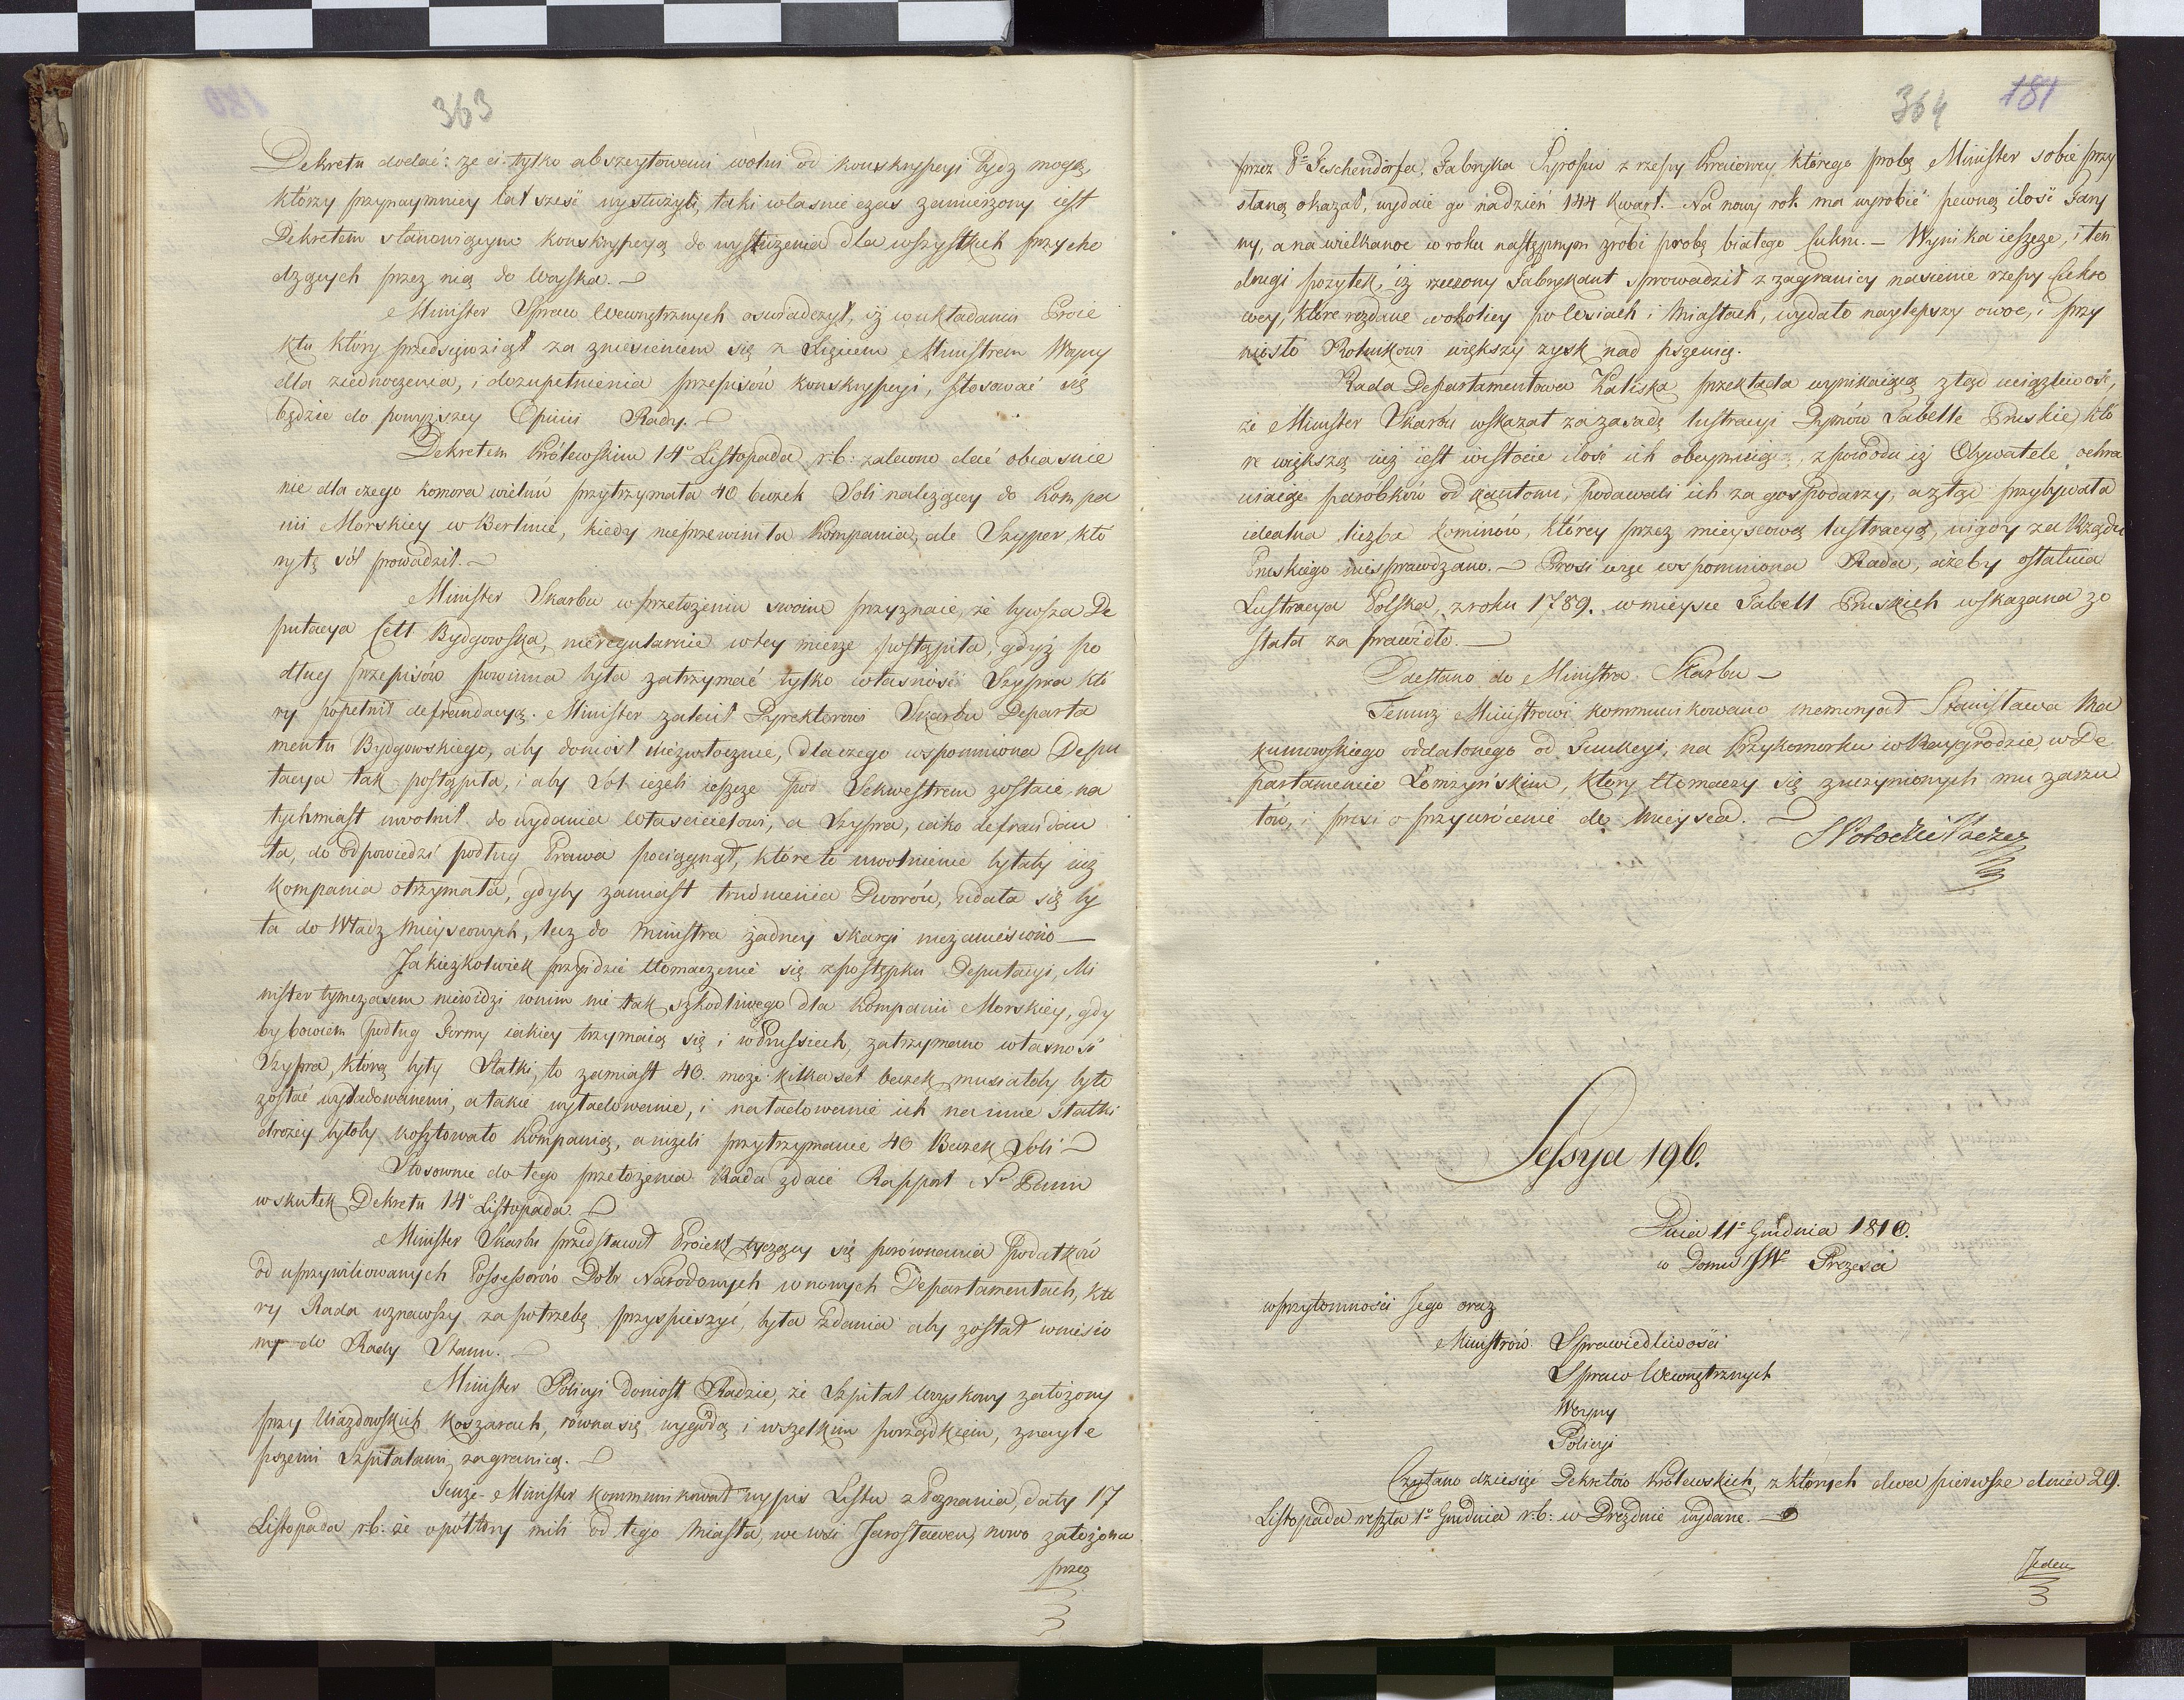 363
Dekretu dodać: że ci tylko abszeytowani wolni od konskrypcyi bydz mogą,
którzy przynaymniey lat sześć wysłużyli, taki własnie czas zamierzony iest
Dekretem stanowiącym konskrypcyą do wysłużenia dla wszystkich przycho
dzących przez nią do Woyska. —
Minister Spraw Wewnętrznych oswiadczył, iż w układaniu Proie
ktu który przedsięwziął za zniesieniem się z Ministrem Woyny
dla ziednoczenia, i dozupełnienia przepisów konskrypcyi, stosować się
będzie do powyższey Opinii Rady. —
Dekretem Królewskim 14o Listopada r.b: zalecono dać obiasnie
nie dla czego komora wieluń przytrzymała 40 beczek Soli należącey do Kompa
nii Morskiey w Berlinie, kiedy nieprzewiniła Kompania, ale Szyper, któ
ry tę sól prowadził. —
Minister Skarbu w przełożeniu swoim przyznaie, że bywsza De
putacya Cełł Bydgowska, nieregularnie w tey mierze postąpiła, gdyż po
dług przepisów powinna była zatrzymać tylko własność Szypra któ
ry popełnił defraudacyą. Minister zalecił Dyrektorowi Skarbu Departa
mentu Bydgowskiego, aby doniosł niezwłocznie, dlaczego wspomniona Depu
tacya tak postąpiła, i aby Sól ieżeli ieszcze pod Sekwestrem zostaie na
tychmiast uwolnił do wydania Właścicielowi, a Szypra, iako defraudan
ta, do odpowiedzi podług Prawa pociągnął, które to uwolnienie byłaby iuż
Kompania otrzymała, gdyby zamiast trudnienia Dworów, udała się by
ła do Władz Mieyscowych, lecz do Ministra żadney skargi niezaniesiono —
Jakiezkolwiek przyidzie tłomaczenie się z postępku Deputacyi, Mi
nister tymczasem niewidzi w nim nic tak szkodliwego dla Kompanii Morskiey, gdy
by bowiem podług Formy iakiey trzymaią się i w Prussiech, zatrzymano własność
Szypra, którą były Statki, to zamiast 40. może kilkaset beczek musiałoby było
zostać wyładowanemi, a takie wyładowanie, i naładowanie ich na inne statki
drożey byłoby kosztowało Kompanią, aniżeli przytrzymanie 40 Beczek Soli —
Stosownie do tego przełożenia Rada zdaie Rapport N. Panu
w skutek Dekretu 14o Listopada. —
Minister Skarbu przedstawił Proiekt tyczący się porównania podatków
od uprzywiliowanych Possessorów Dóbr Narodowych w nowych Departamentach, któ
ry Rada uznawszy za potrzebę przyspieszyć, była zdania aby został wniesio
ny do Rady Stanu. —
Minister Policyi doniosł Radzie, że Szpital Woyskowy założony
przy Uiazdowskich Koszarach, równa się wygodą i wszelkim porządkiem, z nayle
pszemi Szpitalami zagranicą. —
Tenże Minister kommunikował wypis Listu z Poznania, daty 17
Listopada r.b. że o półtory mili od tego Miasta, we wsi Jarosławcu, nowo założona
przez
364 181
przez Pa Teschendorfa, Fabryka Syropu z rzepy Kraiowey, którego probę Minister sobie przy
słaną okazał, wydaie go na dzień 144 kwart. — Na nowy rok ma wyrobić pewną ilość Fary
ny, a na wielkanoc w roku następnym zrobi probę białego Cukru. — Wynika ieszcze, i ten
drugi pożytek, iż rzeczony Fabrykant sprowadził z zagranicy nasienie rzepy Cukro
wey, które rozdane w okolicy po Wsiach i Miastach, wydało naylepszy owoc, i przy
niosło Rolnikowi większy zysk nad pszenicę.
Rada Departamentowa Kaliska przekłada wynikaiącą z tąd uciążliwość,
że Minister Skarbu wskazał za zasadę lustracyi Dymów Tabelle Pruskie, któ
re większą niż iest w istocie ilość ich obeymuią, z powodu iż Obywatele ochra
niaiąc parobków od kantonu, podawali ich za gospodarzy, a ztąd przybywała
idealna liczba kominów, którey przez mieyscową lustracyą, nigdy za Rządu
Pruskiego niesprawdzano. — Prosi więc wspomniona Rada, ażeby ostatnia
Lustracya Polska, z roku 1789. w mieysce Tabell Pruskich wskazana zo
stała za prawidło. —
Odesłano do Ministra Skarbu —
Temuż Ministrowi kommunikowano memoryał Stanisława Ma
kumowskiego oddalonego od Funkcyi, na Przykomorku w Raygrodzie, w De
partamencie Łomżyńskim, który tłomaczy się z uczynionych mu zarzu
tów, i prosi o przywrócenie do Mieysca. —
S Potocki Prezes
Sessya 196.
Dnia 11o Grudnia 1810.
w Domu JWo Prezesa
w przytomności Jego oraz
Ministrów Sprawiedliwości
Spraw Wewnętrznych
Woyny
Policyi
Czytano dziesięć Dekretów Królewskich, z których dwa pierwsze dnia 29.
Listopada reszta 1o Grudnia r.b: w Dreźdnie wydane. —
Jeden